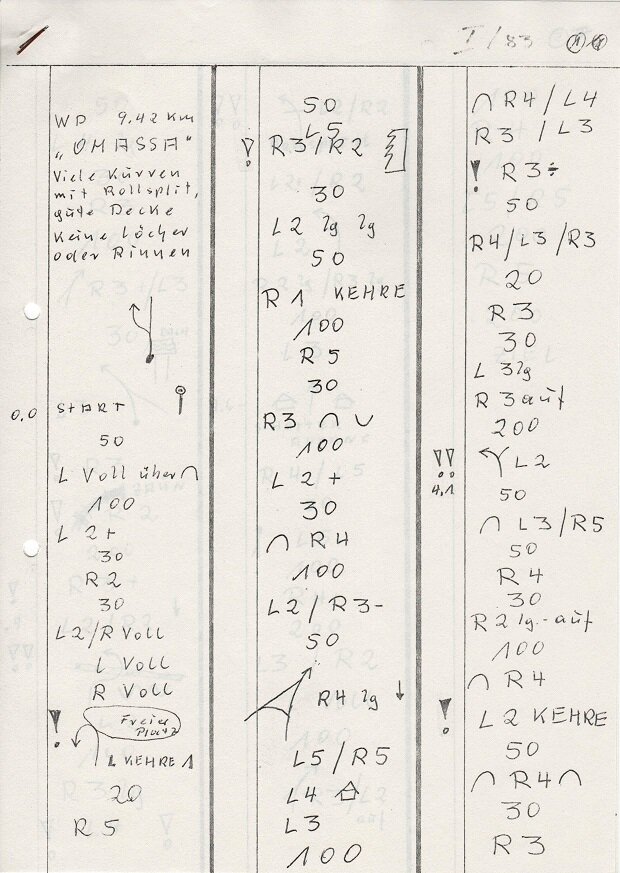 I/83
WP 9,42 Km
„OMASSA"
Viele Kurven
mit Rollsplit,
gute Decke
Keine Löcher
oder Rinnen
0,0 START
50
L Voll über ∩
100
L 2+
30
R 2
30
L2/R Voll
L Voll
R Voll
! Freier
Platz
L KEHRE 1
20
R 5
50
L5
! R3/R2
30
L 2 lg lg
50
R 1 KEHRE
100
R 5
30
R3 ∩ ∪
100
L 2 +
30
∩ R4
100
L2/R3-
50
R4 lg ↓
L5/R5
L4
L3
100
∩ R4/L4
R3/L3
! R3÷
50
R4/L3/R3
20
R3
30
L 3 lg
R 3 auf
200
!! L2
4,1
50
∩ L3/R5
50
R4
30
R 2 lg.-auf
100
∩ R4
! L2 KEHRE
50
∩ R4 ∩
30
R3